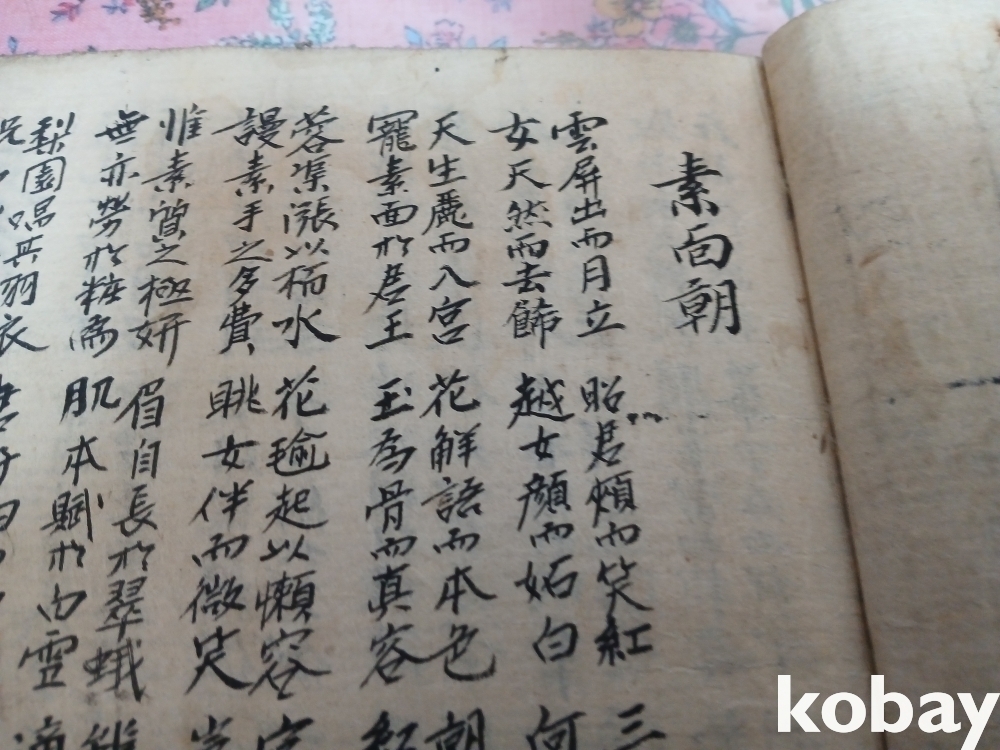 素面朝
雲屏出而月立 昭君頰而笑紅 三
女天然而去餙 越女顔而妬白 何
天生麗而入宮 花解語而本色 朝
寵素面於君王 玉為骨而真容
蓉渠漲以水 花起以懶容
謾素手之多費 眺女伴而微笑
惟素質之極妍 眉自長於翠蛾
無亦勞於粧 肌本賦於白雪
梨園唱其羽衣
kobay